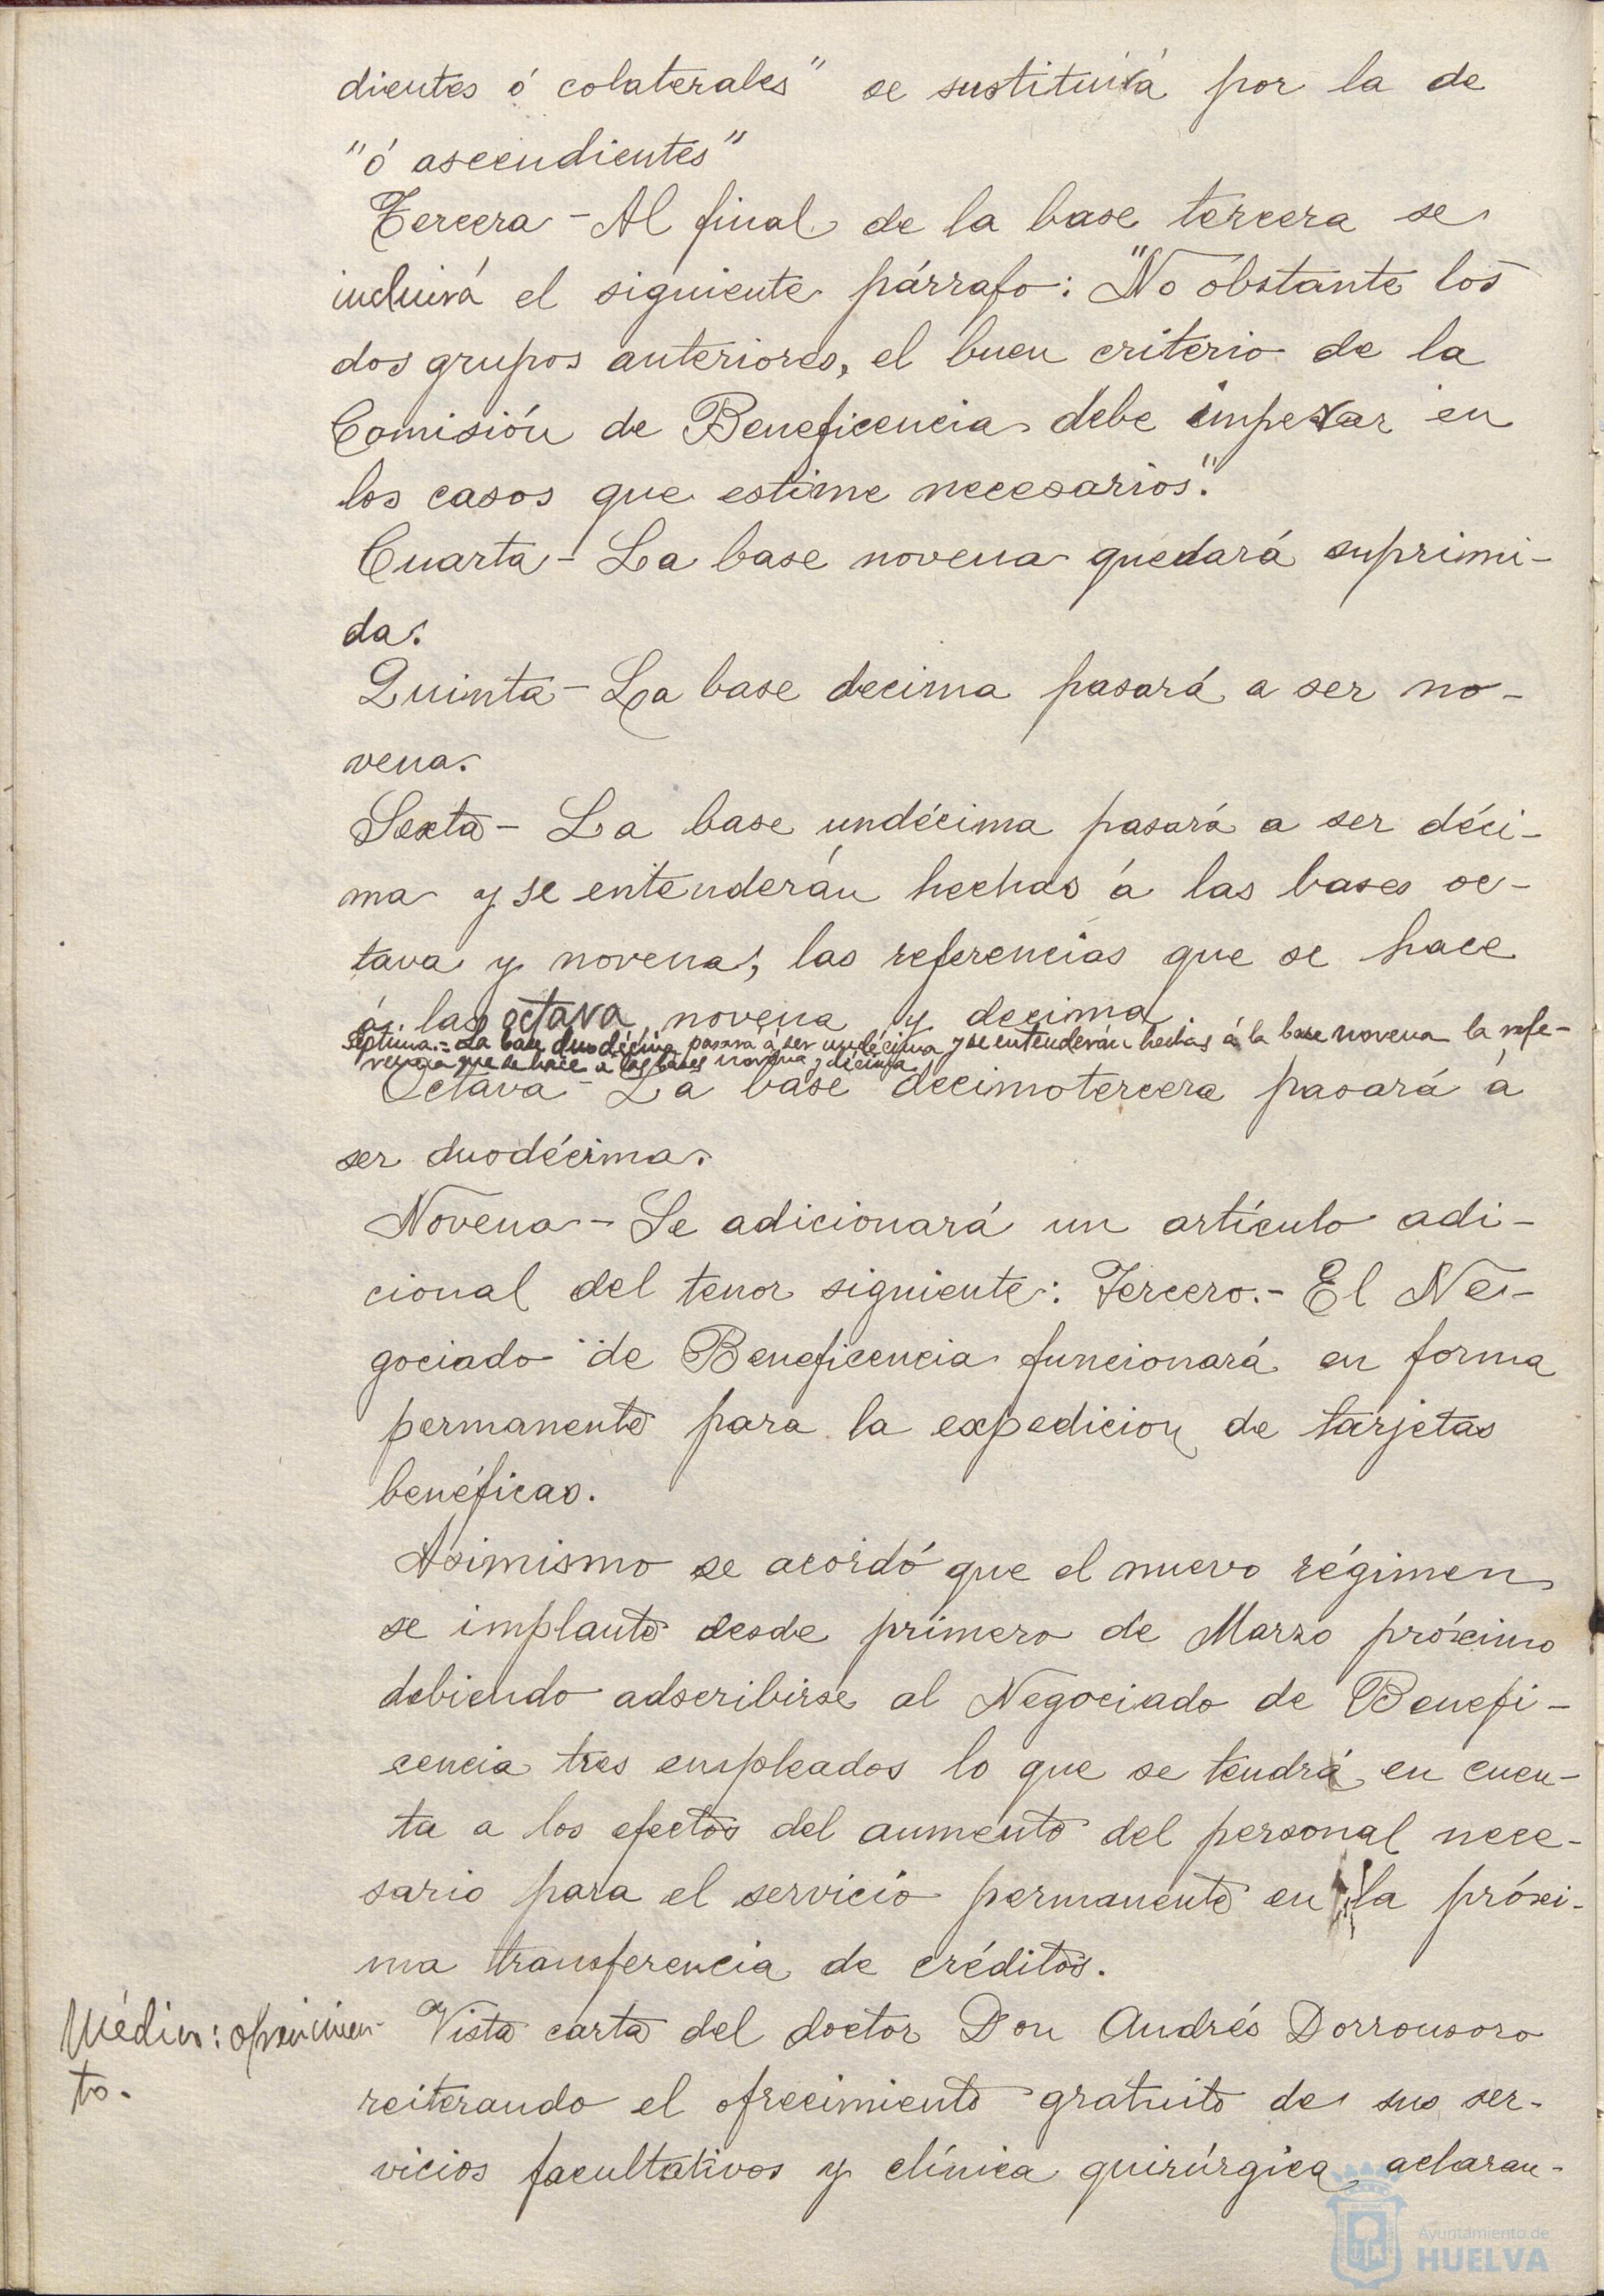 dientes ó colaterales" se sustituirá por la de
"ó ascendientes"
Tercera - Al final de la base tercera se
incluirá el siguiente párrafo: "No obstante los
dos grupos anteriores, el buen criterio de la
Comisión de Beneficencia debe imperar en
los casos que estime necesarios".
Cuarta - La base novena quedará suprimi-
da.
Quinta - La base decima pasará a ser no-
vena.
Sexta - La base undécima pasará a ser déci-
ma y se entenderán hechas á las bases oc-
tava y novena, las referencias que se hace
á las octava, novena y decima
Septima.- La base duodécima pasara á ser undécima y se entenderán hechas á la base novena la refe-
rencia que se hace a las bases novena y décima
Octava - La base decimotercera pasará á
ser duodécima.
Novena - Se adicionará un artículo adi-
cional del tenor siguiente: Tercero.- El Ne-
gociado de Beneficencia funcionará en forma
permanente para la expedicion de tarjetas
benéficas.
Asimismo se acordó que el nuevo régimen
se implante desde primero de Marzo próximo
debiendo adscribirse al Negociado de Benefi-
cencia tres empleados lo que se tendrá en cuen-
ta a los efectos del aumento del personal nece-
sario para el servicio permanente en la próxi-
ma transferencia de créditos.
Médico: ofrecimien-
to.
Vista carta del doctor Don Andrés Dorronsoro
reiterando el ofrecimiento gratuito de sus ser-
vicios facultativos y clínica quirúrgica, aclaran-
Ayuntamiento de
HUELVA